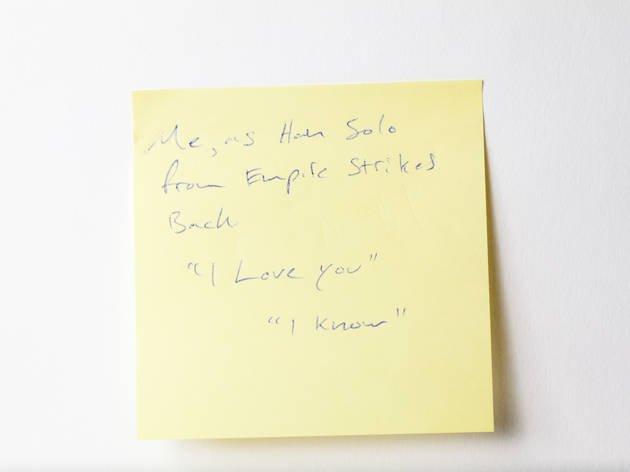 Me, as Han Solo
from Empire Strikes
Back
"I Love you"
"I know"